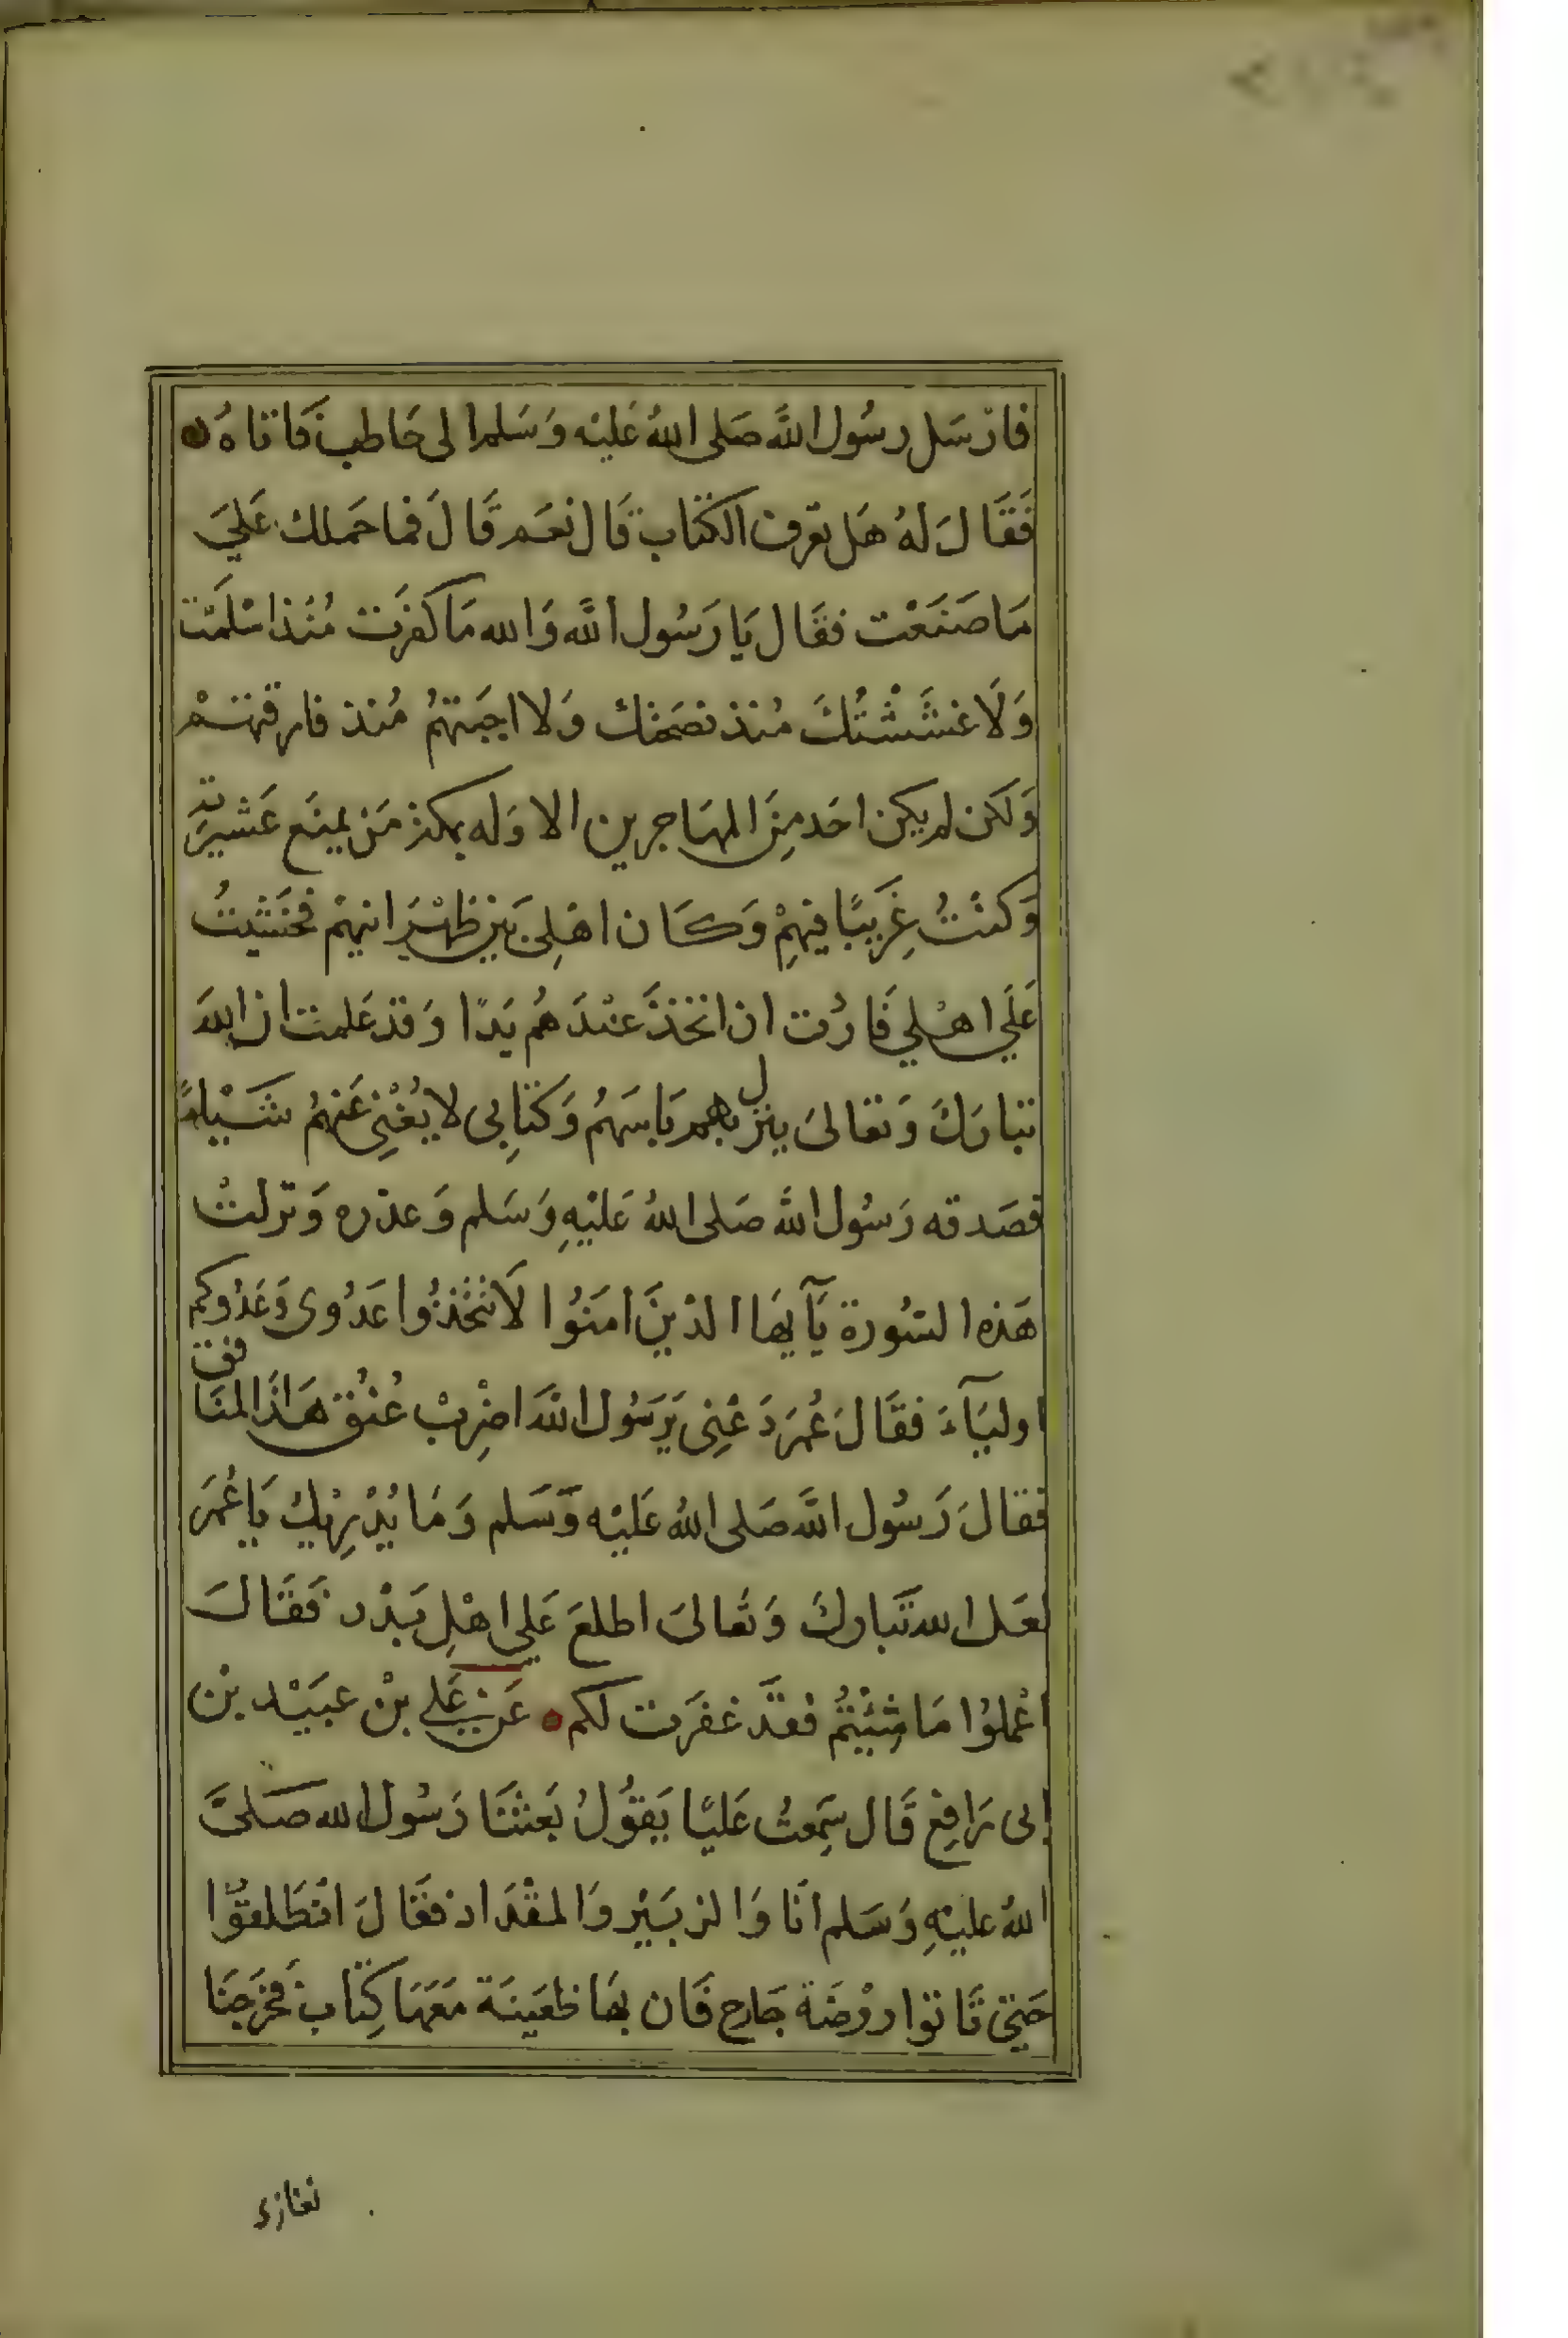 فارسَل رسُول اللَّه صَلى اللهُ عَليْه وَسَلم الى حَاطب فَاتاهُ
فَقَالَ لهُ هَل تعرف الكتاب قَال نعَم قَالَ فما حَملك عَليَ
مَا صَنَعْت فقَال يَا رَسُول اللَّه وَالله مَا كفرَت مُنذ اسْلَمْت
وَلَا غششْتُكَ مُنذ نصَحتك وَلا اجبَتهمُ مُنذ فارقتهمْ
وَلكن لم يكن احَد مِنَ المهَاجرين الا وَله بمكة مَن يمنَع عَشيرَته
وَكنْتُ غِرَيبًا فيهِمْ وَكَان اهْلِى بَين ظهْرَانيهمْ فخَشيتُ
عَلَي اهْلي فَاردْت ان اتخذَ عنْدَهُم يَدًا وَقدْ عَلمتُ ان اللهَ
تبارَكَ وَتعَالىَ ينزل بهم بَاسَهُم وَكتَابِى لا يُغْنِى عَنهُمْ شَيْاً
فصَدقه رَسُول اللَّه صَلى اللهُ عَليْهِ وَسَلم وَعذره وَنزلتْ
هَذه السُورة يَآ يهَا الذيَن امَنُوا لَا تتخذُوا عَدُوى وَعَدُوكم
اوليَآءَ فقَالَ عُمَر دَعْنِى يَرَسُول اللَّه اضْرِبْ عُنُقَ هَذا المنَافق
فقالَ رَسُول اللَّه صَلى اللهُ عَليْه وَسَلم وَمَا يُدْرِيْكَ يَا عُمَرَ
لعَل الله تَباركَ وَتعَالىَ اطلعَ عَلي اهْلِ بَدْر فَقَالَ
اعْملوُا مَا شِئْتُمُ فقدَ غفَرَت لكم عَن عَلي بنْ عبَيْد بن
ابى رَافِع قَال سَمِعتُ عَليًا يَقوُلُ بَعثنَا رَسُول الله صَلىَّ
اللهُ عليْهِ وَسَلم انَا وَالزبَيْر وَالمقْدَاد فقَالَ انْطَلقوُا
حَتى تَاتوا روْضَة جَارح فَان بهَا ظعَينَة مَعَهَا كِتَاب فخرَجنَا